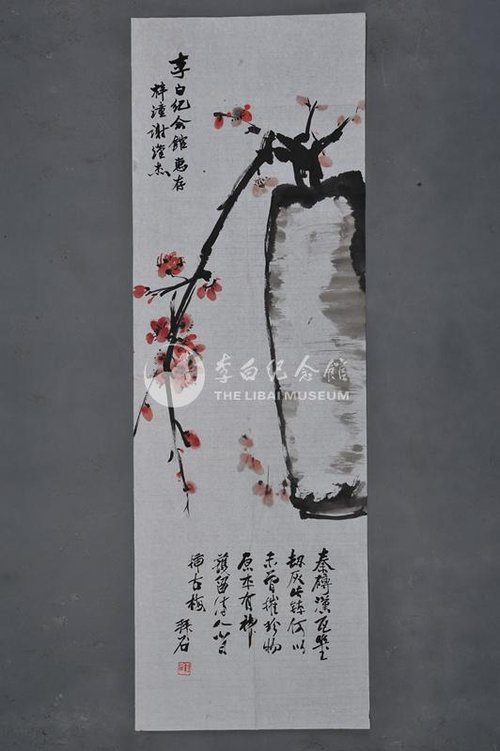 李白纪念館惠存
梓潼谢杰
秦磚漢瓦
劫灰此磚何以
未曾摧珍物
原本有神
護留人
插古梅 拜石
李白纪念館
THE LIBAI MUSEUM